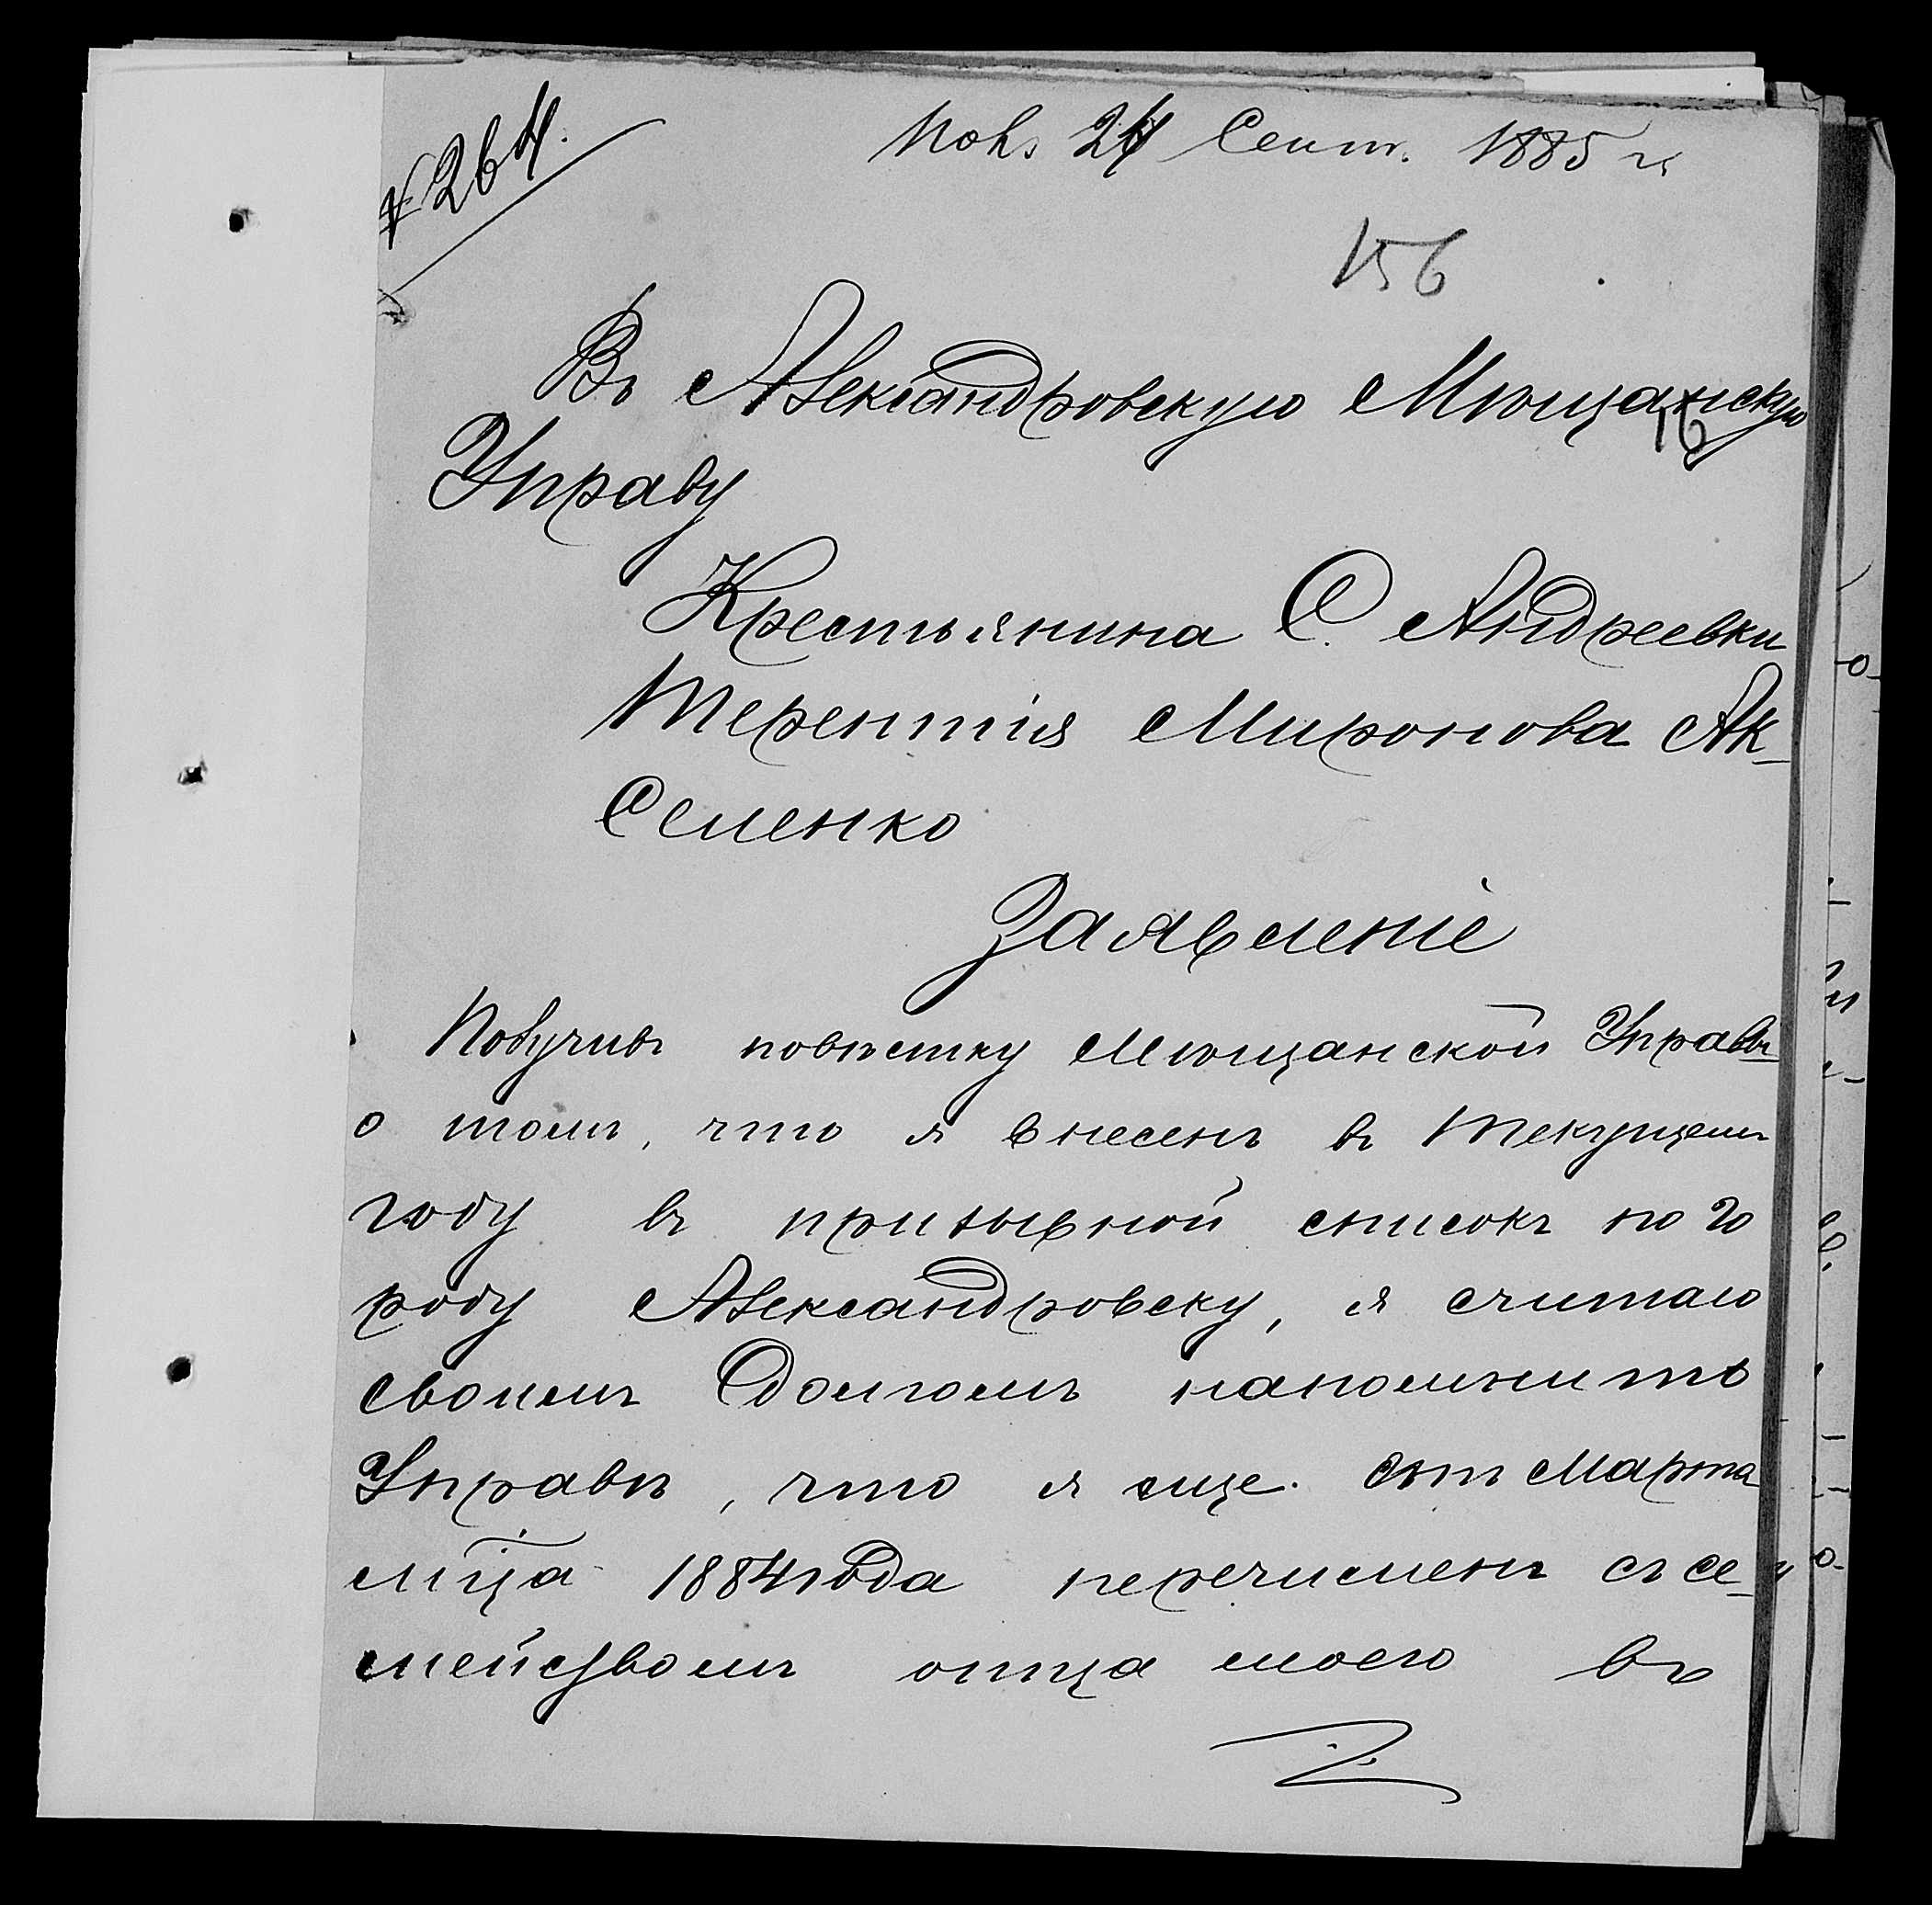 № 264.
Пол. 24 Сент. 1885 г.
156
Въ Александровскую Мѣщанскую
16
Управу
Крестьянина С. Андреевки
Терентія Миронова Ак-
сененко
Заявленіе
Получивъ повѣстку Мѣщанской Управы
о томъ, что я внесенъ въ текущемъ
году въ призывной списокъ по го
роду Александровску, я считаю
своимъ долгомъ напомнить
Управѣ, что я еще отъ Марта
мца 1884 года перечисленъ съ се-
мействомъ отца моего въ